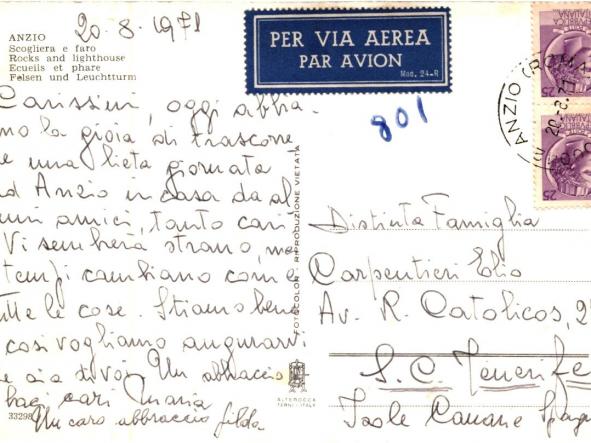 ANZIO
20.8.1971
Scogliera e faro
Rocks and lighthouse
Ecueils et phare
Felsen und Leuchtturm
PER VIA AEREA
PAR AVION
Mod. 24-R
801
ANZIO (ROMA)
20-8-71
Carissimi, oggi abbia-
mo la gioia di trascorre
re una lieta giornata
ad Anzio in casa da al
cuni amici, tanto cari
Vi sembrerà strano, ma
tempi cambiano come
tutte le cose. Stiamo bene
così vogliamo augurarvi
e sia di voi. Un abbraccio
baci cari Maria
Un caro abbraccio Gilda
33298
FOTOCOLOR - RIPRODUZIONE VIETATA
ALTEROCCA
TERNI - ITALY
Distinta Famiglia
Carpentieri Elio
Av. R. Catolicos, 2
S. C. Tenerife
Isole Canarie Spagn